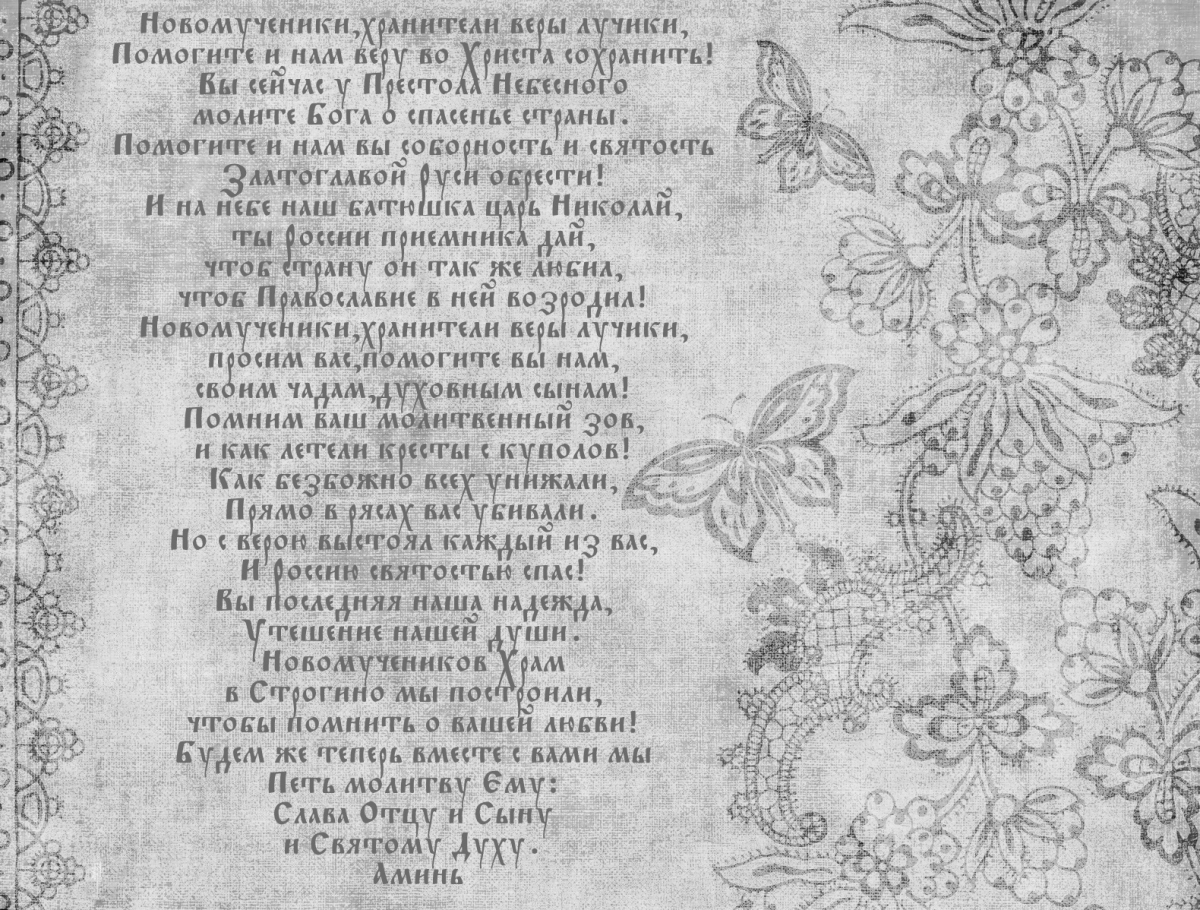 Новомученики,хранители веры лучики,
Помогите и нам веру во Христа сохранить!
Вы сейчас у Престола Небесного
молите Бога о спасенье страны.
Помогите и нам вы соборность и святость
Златоглавой Руси обрести!
И на небе наш батюшка царь Николай,
ты России приемника дай,
чтоб страну он так же любил,
чтоб Православие в ней возродил!
Новомученики,хранители веры лучики,
просим вас,помогите вы нам,
своим чадам,духовным сынам!
Помним ваш молитвенный зов,
и как летели кресты с куполов!
Как безбожно всех унижали,
Прямо в рясах вас убивали.
Но с верою выстоял каждый из вас,
И Россию святостью спас!
Вы последняя наша надежда,
Утешение нашей души.
Новомучеников Храм
в Строгино мы построили,
чтобы помнить о вашей любви!
Будем же теперь вместе с вами мы
Петь молитву Ему:
Слава Отцу и Сыну
и Святому Духу.
Аминь